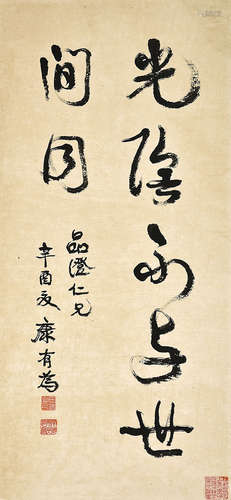 光陰不与世
間同
品澄仁兄
辛酉夏 康有為